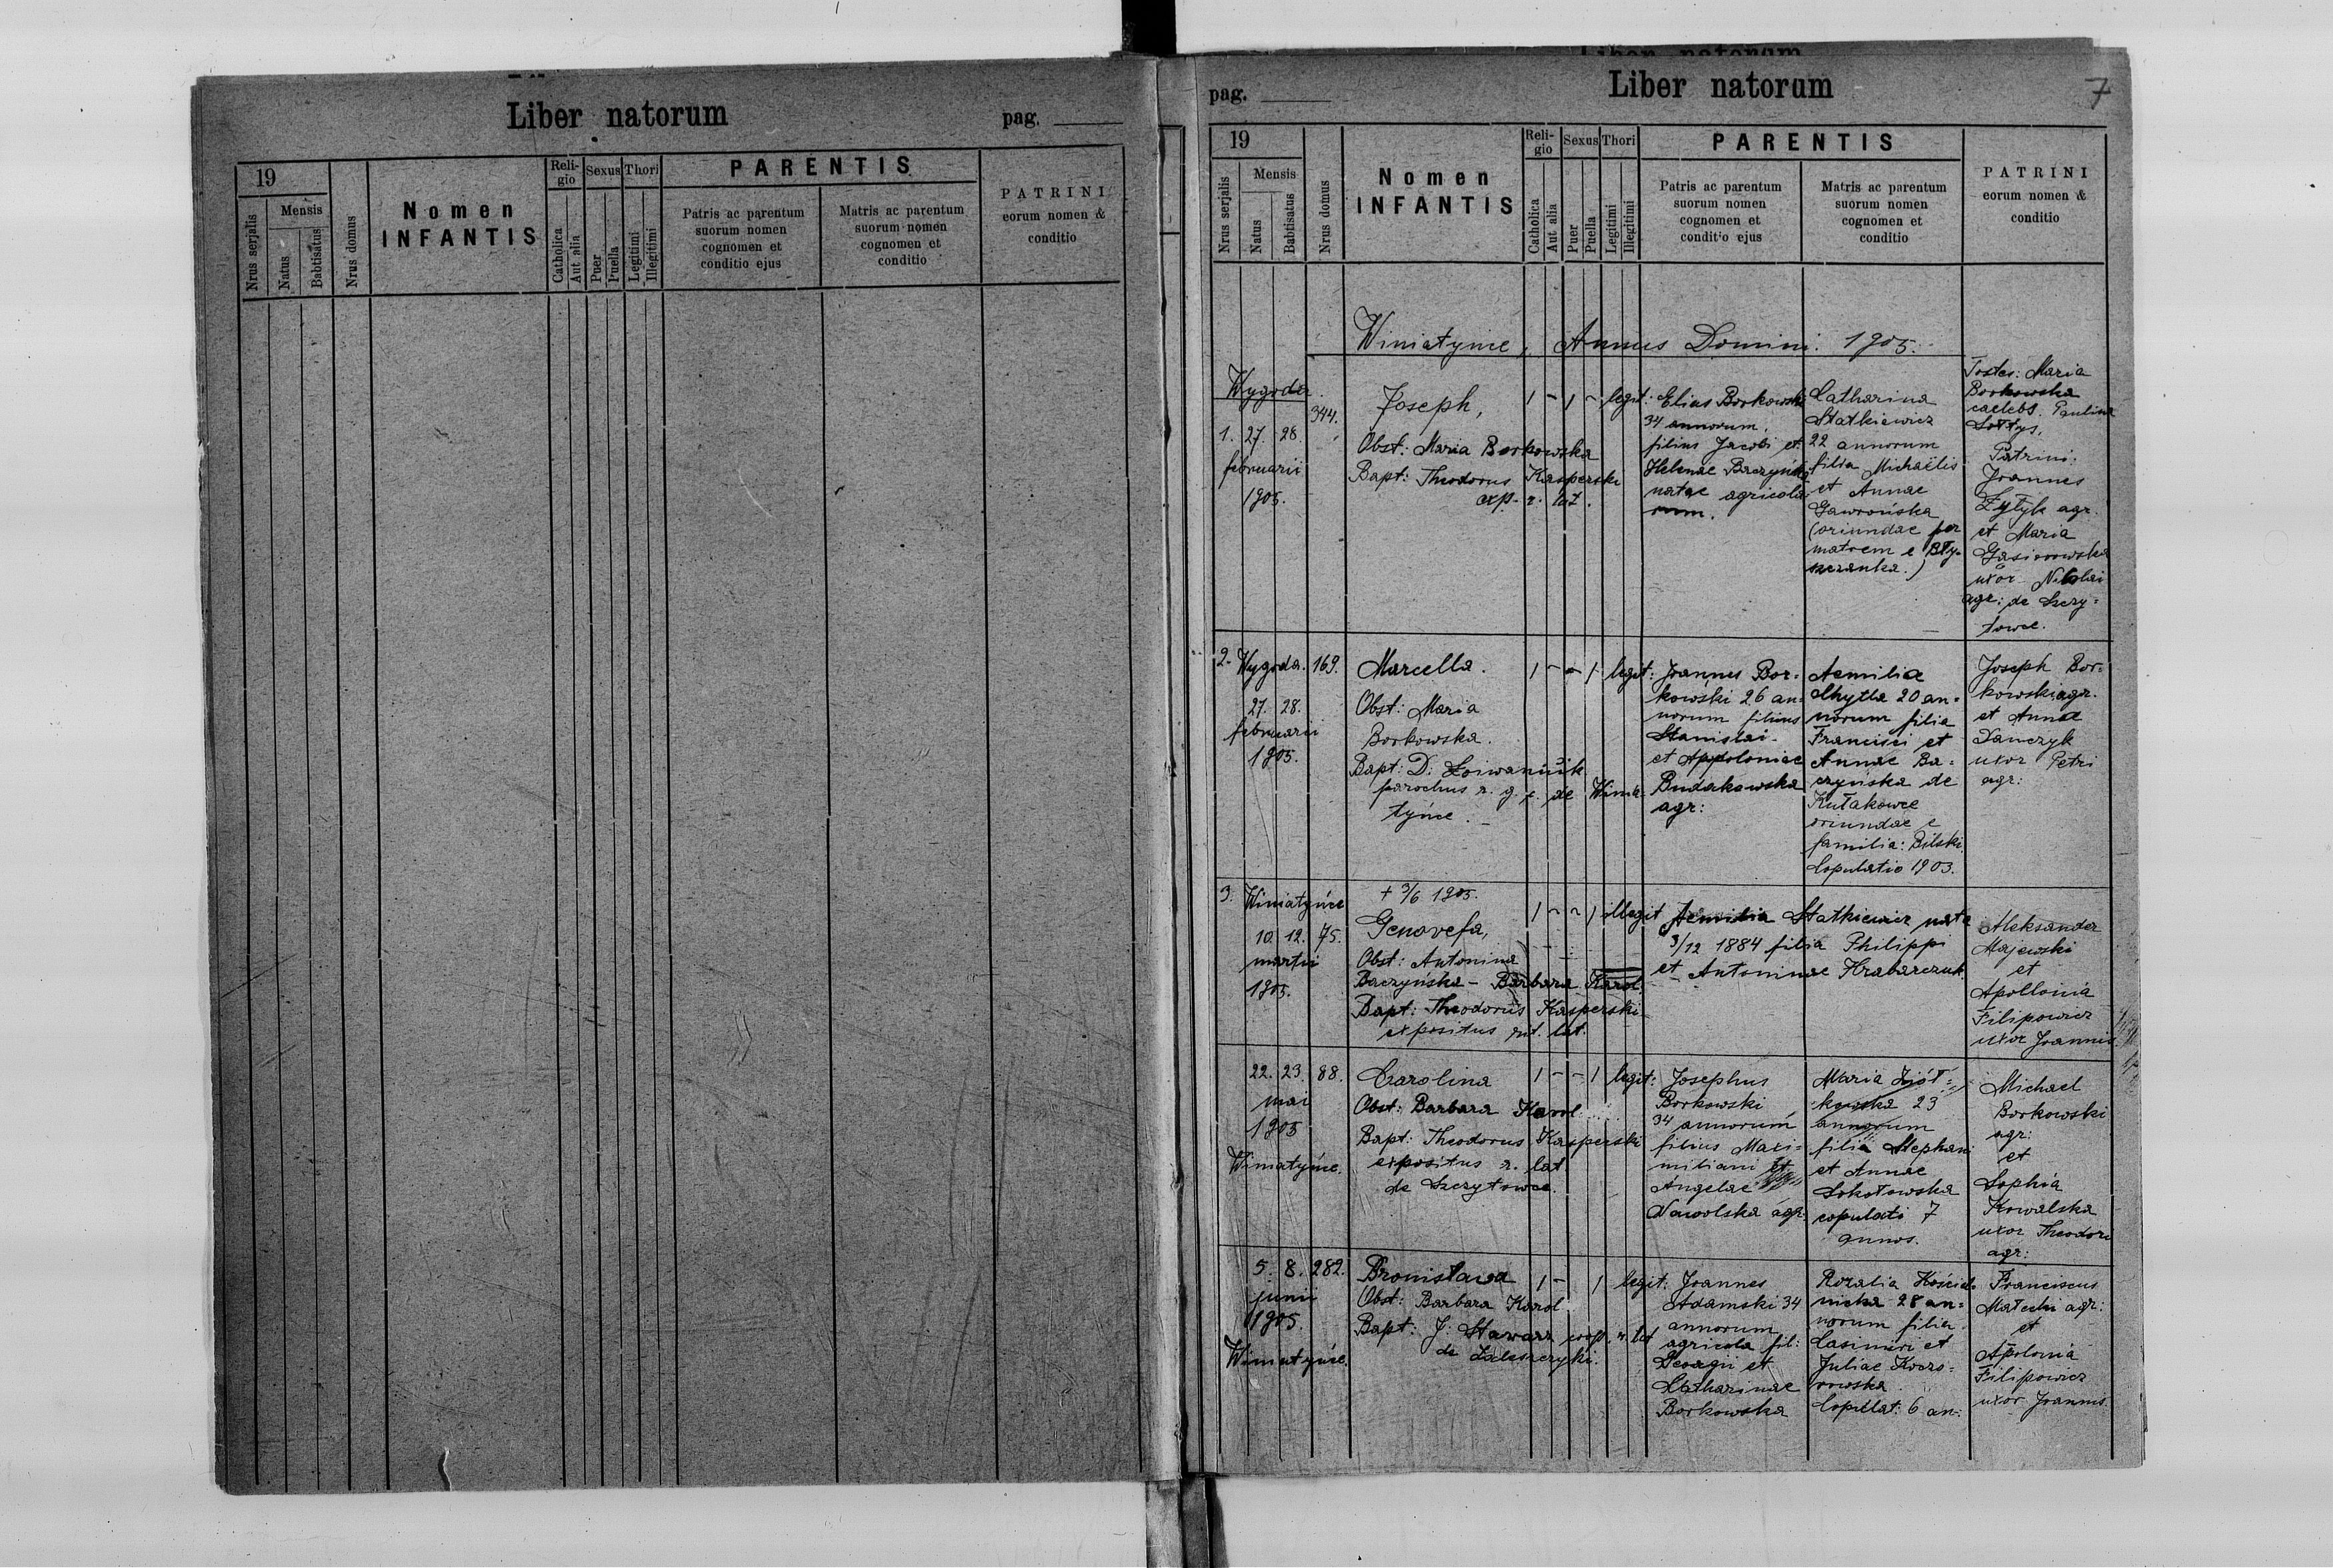 Liber natorum
pag.
19
Nrus serjalis
Mensis
Natus
Babtisatus
Nrus domus
Nomen
INFANTIS
Reli-
gio
Catholica
Aut alia
Sexus
Puer
Puella
Thori
Legitimi
Illegitimi
PARENTIS
Patris ac parentum
suorum nomen
cognomen et
conditio ejus
Matris ac parentum
suorum nomen
cognomen et
conditio
PATRINI
eorum nomen &
conditio
Liber natorum
pag.
Liber natorum
7
19
Nrus serjalis
Mensis
Natus
Babtisatus
Nrus domus
Nomen
INFANTIS
Reli-
gio
Catholica
Aut alia
Sexus
Puer
Puella
Thori
Legitimi
Illegitimi
PARENTIS
Patris ac parentum
suorum nomen
cognomen et
conditio ejus
Matris ac parentum
suorum nomen
cognomen et
conditio
PATRINI
eorum nomen &
conditio
Winiatynce, Annus Domini 1905.
Wygoda
1. 27. 28. 344.
februarii
1905.
Joseph,
Obst: Maria Borkowska
Bapt: Theodorus Kasperski
exp. r. lat.
1 - 1 - legit:
Elias Borkowski
34 annorum,
filius Jacobi et
Helenae Baczyńska
natae agricola
rum.
Catharina
Statkiewicz
22 annorum
filia Michaëlis
et Annae
Gawrońska
(oriundae per
matrem e Bły-
szczanka.)
Testes: Maria
Borkowska
caelebs. Paulina
Sołtys,
Patrini:
Joannes
Zytyk agr.
et Maria
Gąsiorowska
uxor Nikolai
agr: de Szczy-
towce.
2. Wygoda. 169.
27. 28.
februarii
1905.
Marcella.
Obst: Maria
Borkowska.
Bapt: D.
parochus r. g. c. de Winia-
tynce.
1 - - 1 legit:
Joannes Bor-
kowski 26 an-
norum filius
Stanislai
et Appoloniae
Budakowska
agr:
Aemilia
20 an-
norum filia
Francisci et
Annae Ba-
czyńska de
Kułakowce
oriundae e
familia: Bilski.
Copulatio 1903.
Joseph Bor-
kowski agr.
et Anna
uxor Petri
agr:
3. Winiatynce
10. 12. 75.
martii
1905.
+ 3/6 1905.
Genovefa,
Obst: Antonina
Baczyńska - Barbara Karol.
Bapt: Theodorus Kasperski
expositus rit. lat.
1 - - 1 illegit
Aemilia Statkiewicz nata
3/12 1884 filia Philippi
et Antoninae Hrabarczuk.
Aleksander
Majewski
et
Apollonia
Filipowicz
uxor Joannis
22. 23. 88.
mai
1905
Winiatynce.
Carolina
Obst: Barbara Karol
Bapt: Theodorus Kasperski
expositus r. lat
de Szczytowce.
1 - - 1 legit:
Josephus
Borkowski
34 annorum
filius Maxi-
miliani et
Angelae
Nawolska agr.
Maria Ziół-
kowska 23
annorum
filia Stephani
et Annae
Sokołowska
copulati 7
annos.
Michael
Borkowski
agr:
et
Sophia
Kowalska
uxor Theodori
agr:
5. 8. 282.
junii
1905.
Winiatynce.
Bronisława
Obst: Barbara Karol
Bapt: J. Stawarz coop. r. lat
de Zaleszczyki.
1 - 1 legit:
Joannes
Adamski 34
annorum
agricola fil:
Georgii et
Catharinae
Borkowska
Rozalia Kościel-
nicka 28 an-
norum filia
Casimiri et
Juliae
Copulat: 6 an:
Franciscus
agr:
et
Apolonia
Filipowicz
uxor Joannis.